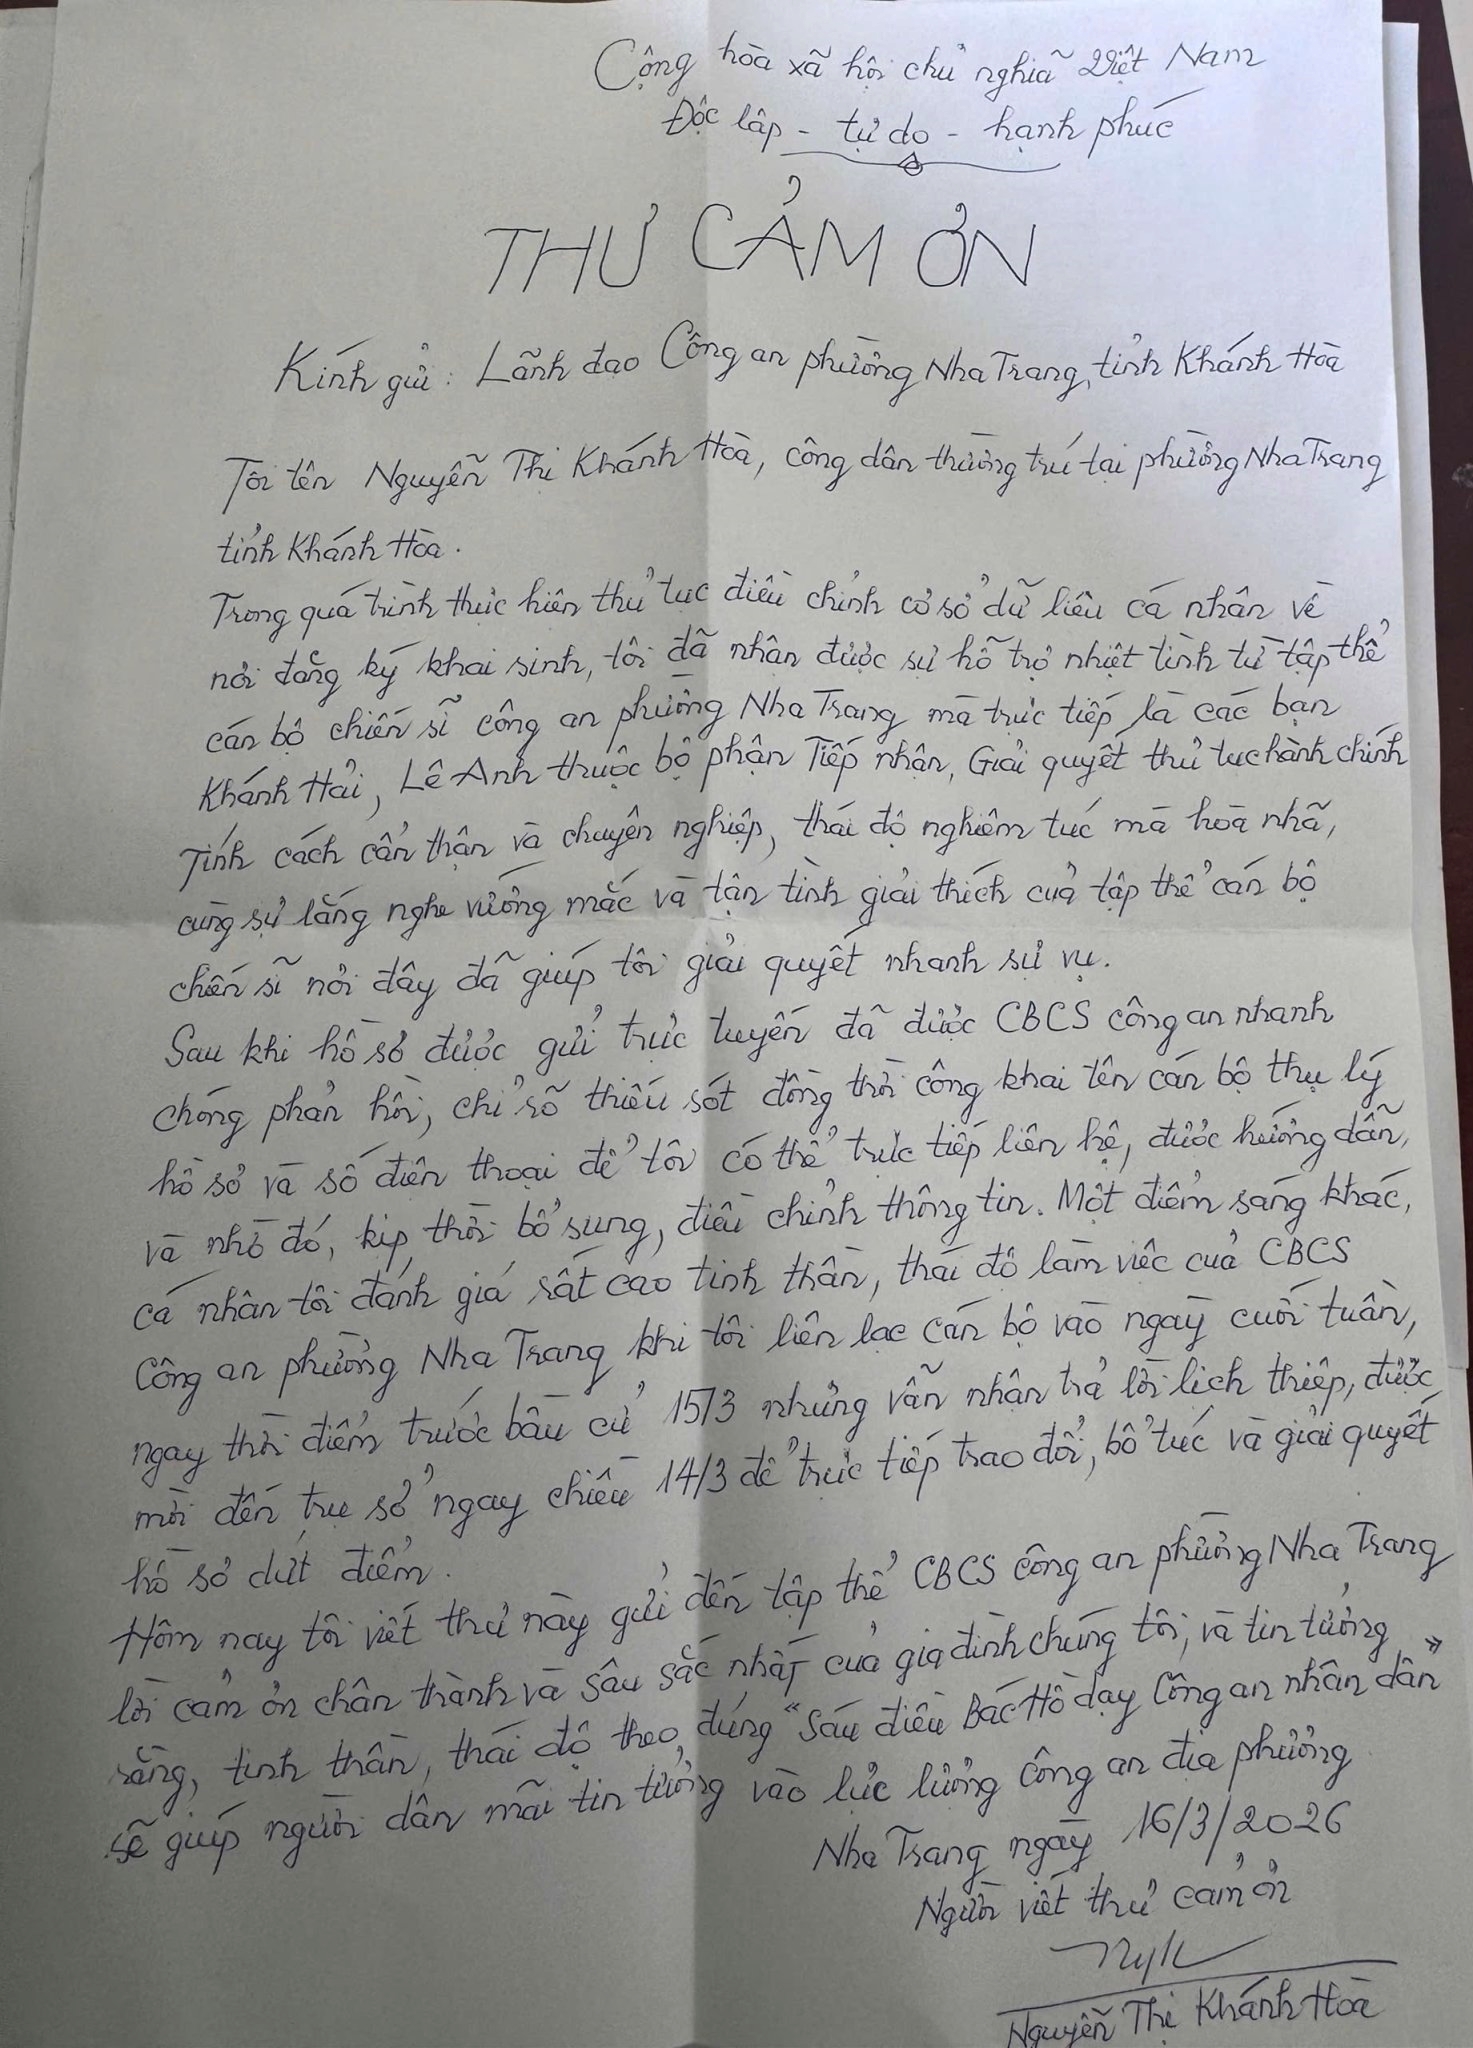 Cộng hòa xã hội chủ nghĩa Việt Nam
Độc lập - tự do - hạnh phúc
THƯ CẢM ƠN
Kính gửi: Lãnh đạo Công an phường Nha Trang, tỉnh Khánh Hòa
Tôi tên Nguyễn Thị Khánh Hòa, công dân thường trú tại phường Nha Trang
tỉnh Khánh Hòa.
Trong quá trình thực hiện thủ tục điều chỉnh cơ sở dữ liệu cá nhân về
nơi đăng ký khai sinh, tôi đã nhận được sự hỗ trợ nhiệt tình từ tập thể
cán bộ chiến sĩ công an phường Nha Trang mà trực tiếp là các bạn
Khánh Hải, Lê Anh thuộc bộ phận Tiếp nhận, Giải quyết thủ tục hành chính
Tính cách cẩn thận và chuyên nghiệp, thái độ nghiêm túc mà hòa nhã,
cùng sự lắng nghe vướng mắc và tận tình giải thích của tập thể cán bộ
chiến sĩ nơi đây đã giúp tôi giải quyết nhanh sự vụ.
Sau khi hồ sơ được gửi trực tuyến đã được CBCS công an nhanh
chóng phản hồi, chỉ rõ thiếu sót đồng thời công khai tên cán bộ thụ lý
hồ sơ và số điện thoại để tôi có thể trực tiếp liên hệ, được hướng dẫn,
và nhờ đó, kịp thời bổ sung, điều chỉnh thông tin. Một điểm sáng khác,
cá nhân tôi đánh giá rất cao tinh thần, thái độ làm việc của CBCS
Công an phường Nha Trang khi tôi liên lạc cán bộ vào ngày cuối tuần,
ngay thời điểm trước bầu cử 15/3 nhưng vẫn nhận trả lời lịch thiệp, được
mời đến trụ sở ngay chiều 14/3 để trực tiếp trao đổi, bổ túc và giải quyết
hồ sơ dứt điểm.
Hôm nay tôi viết thư này gửi đến tập thể CBCS công an phường Nha Trang
lời cảm ơn chân thành và sâu sắc nhất của gia đình chúng tôi, và tin tưởng
rằng, tinh thần, thái độ theo đúng "Sáu điều Bác Hồ dạy Công an nhân dân"
sẽ giúp người dân mãi tin tưởng vào lực lượng công an địa phương
Nha Trang ngày 16/3/2026
Người viết thư cảm ơn
Nguyễn Thị Khánh Hòa